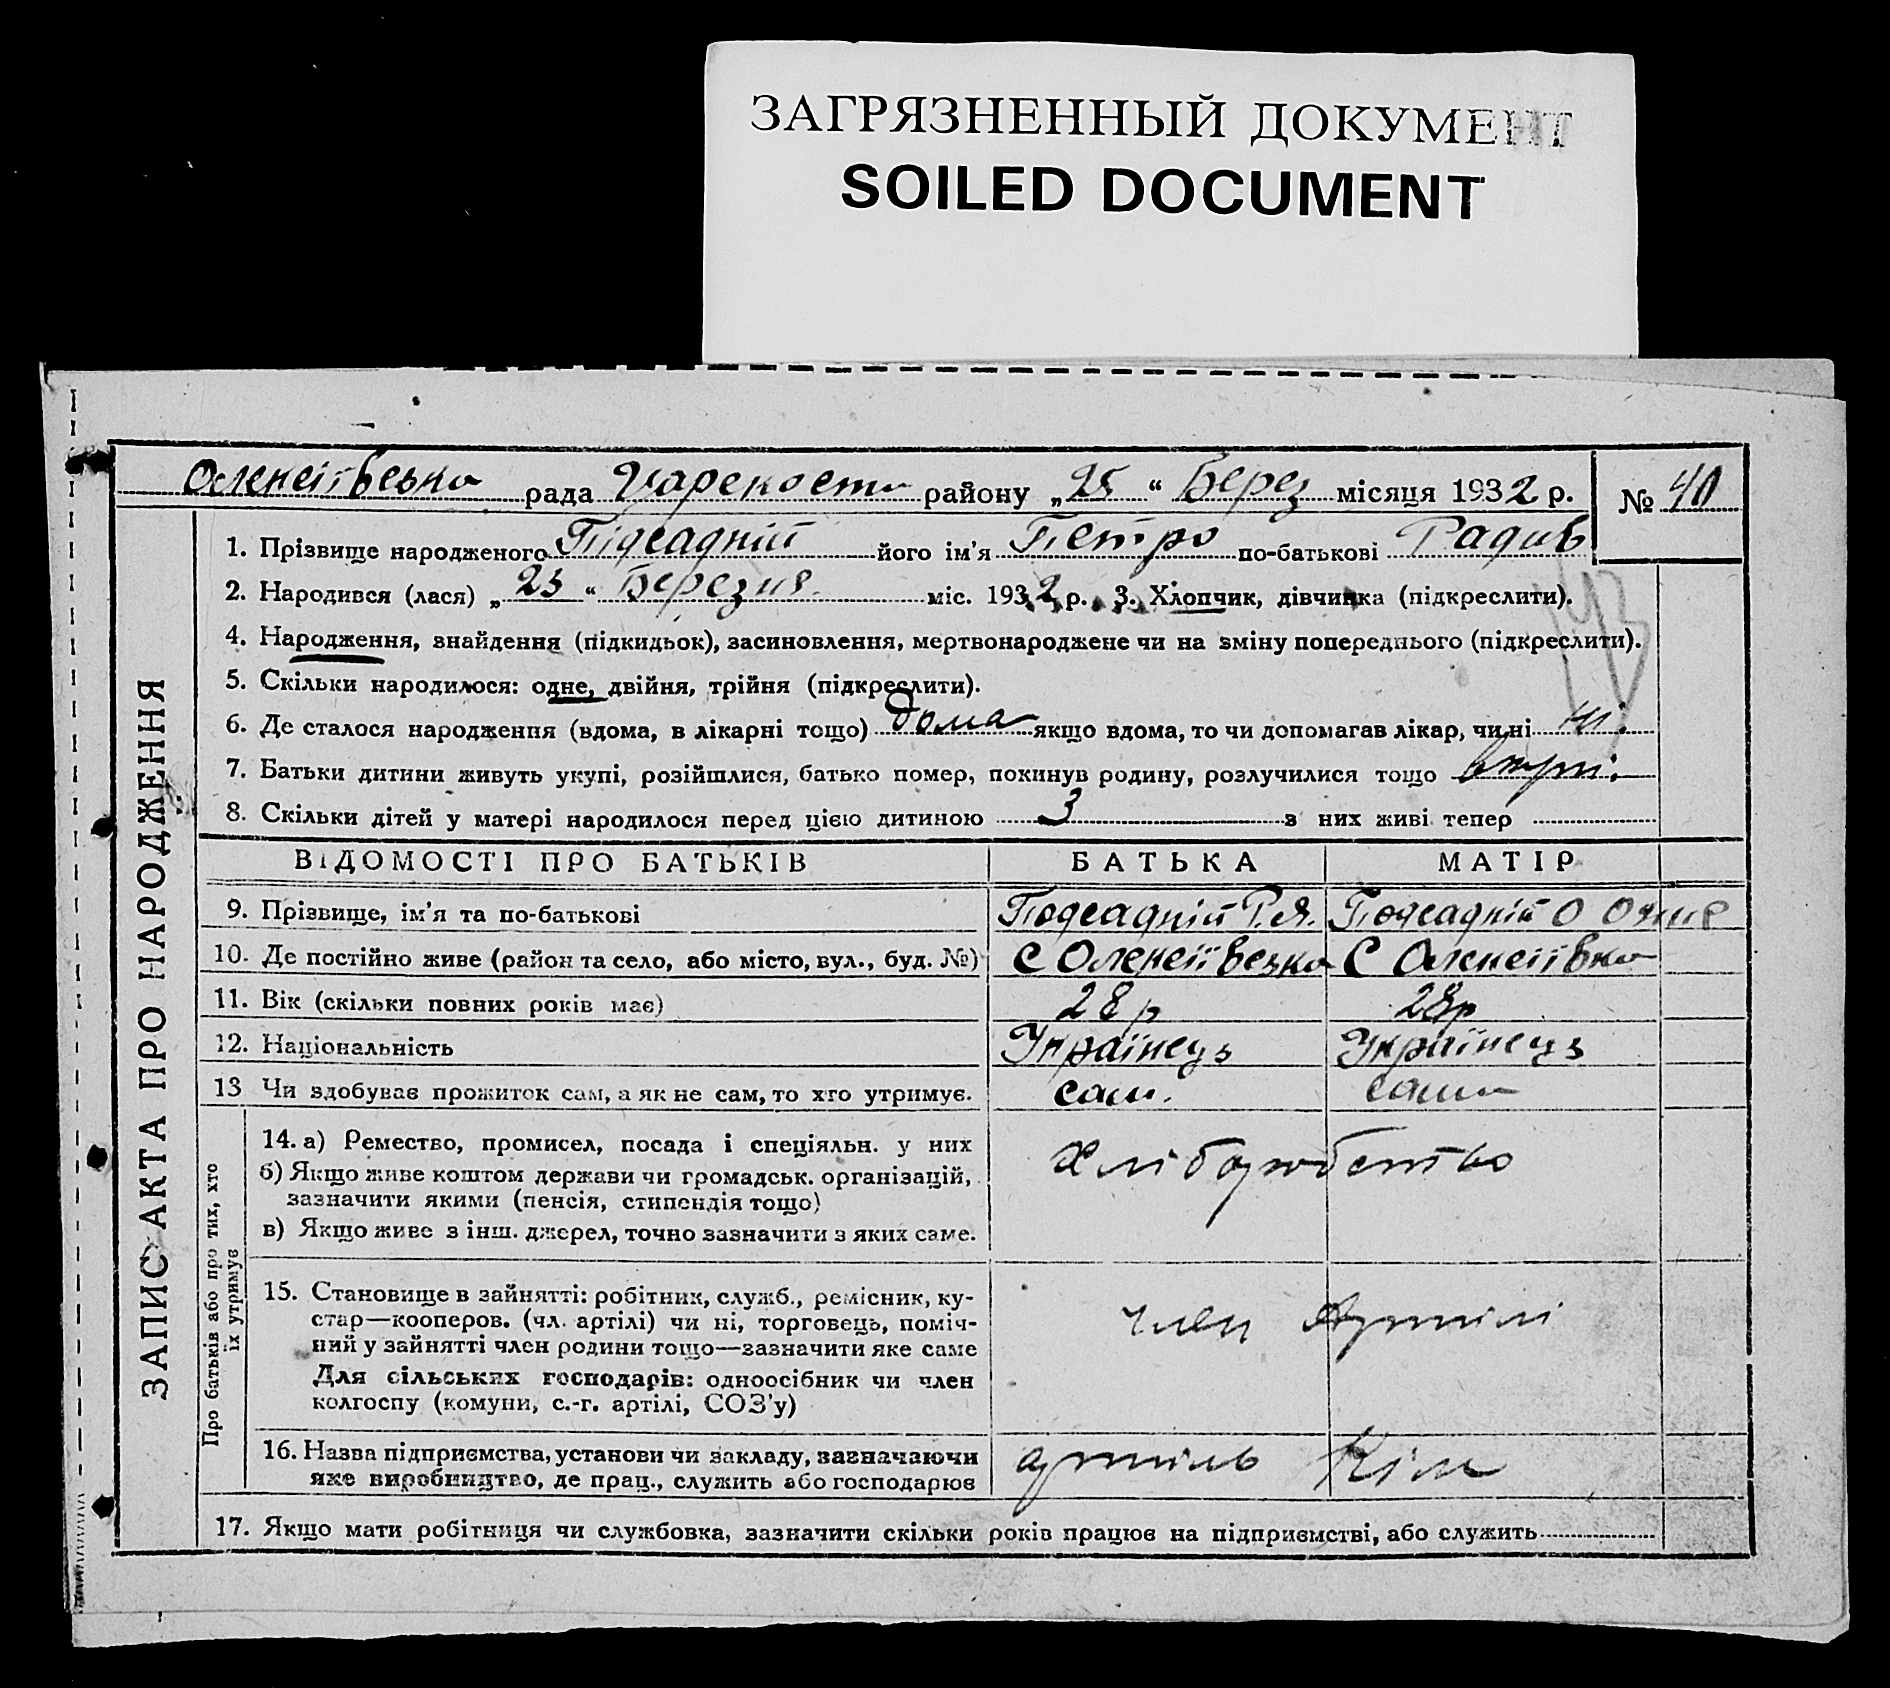 ЗАГРЯЗНЕННЫЙ ДОКУМЕНТ
SOILED DOCUMENT
Олексіївська рада району „25“ Берез місяця 1932 р. № 40
1. Прізвище народженого Підсадній його ім'я Петро по-батькові Радив
2. Народився (лася) „23“ Березня міс. 1932 р. 3. Хлопчик, дівчинка (підкреслити).
4. Народження, знайдення (підкидьок), засиновлення, мертвонароджене чи на зміну попереднього (підкреслити).
5. Скільки народилося: одне, двійня, трійня (підкреслити).
6. Де сталося народження (вдома, в лікарні тощо) дома якщо вдома, то чи допомагав лікар, чи ні ні.
7. Батьки дитини живуть укупі, розійшлися, батько помер, покинув родину, розлучилися тощо вкупі.
8. Скільки дітей у матері народилося перед цією дитиною 3 з них живі тепер
ЗАПИС АКТА ПРО НАРОДЖЕННЯ
ВІДОМОСТІ ПРО БАТЬКІВ БАТЬКА МАТІР
9. Прізвище, ім'я та по-батькові Подсадній Р.Я. Подсадній О
10. Де постійно живе (район та село, або місто, вул., буд. №) С Олексіївська С Олексіївка
11. Вік (скільки повних років має) 28 р 28 р
12. Національність Українець Українець
13 Чи здобуває прожиток сам, а як не сам, то хто утримує. сам. сама
Про батьків або про тих, хто
їх утримує
14. а) Ремество, промисел, посада і спеціяльн. у них
б) Якщо живе коштом держави чи громадськ. організацій,
зазначити якими (пенсія, стипендія тощо)
в) Якщо живе з інш. джерел, точно зазначити з яких саме.
15. Становище в зайнятті: робітник, служб., ремісник, ку-
стар—кооперов. (чл. артілі) чи ні, торговець, поміч-
ний у зайнятті член родини тощо—зазначити яке саме
Для сільських господарів: одноосібник чи член
колгоспу (комуни, с.-г. артілі, СОЗ'у)
член Артілі
16. Назва підприємства, установи чи закладу, зазначаючи
яке виробництво, де прац., служить або господарює
артіль Кім
17. Якщо мати робітниця чи службовка, зазначити скільки років працює на підприємстві, або служить